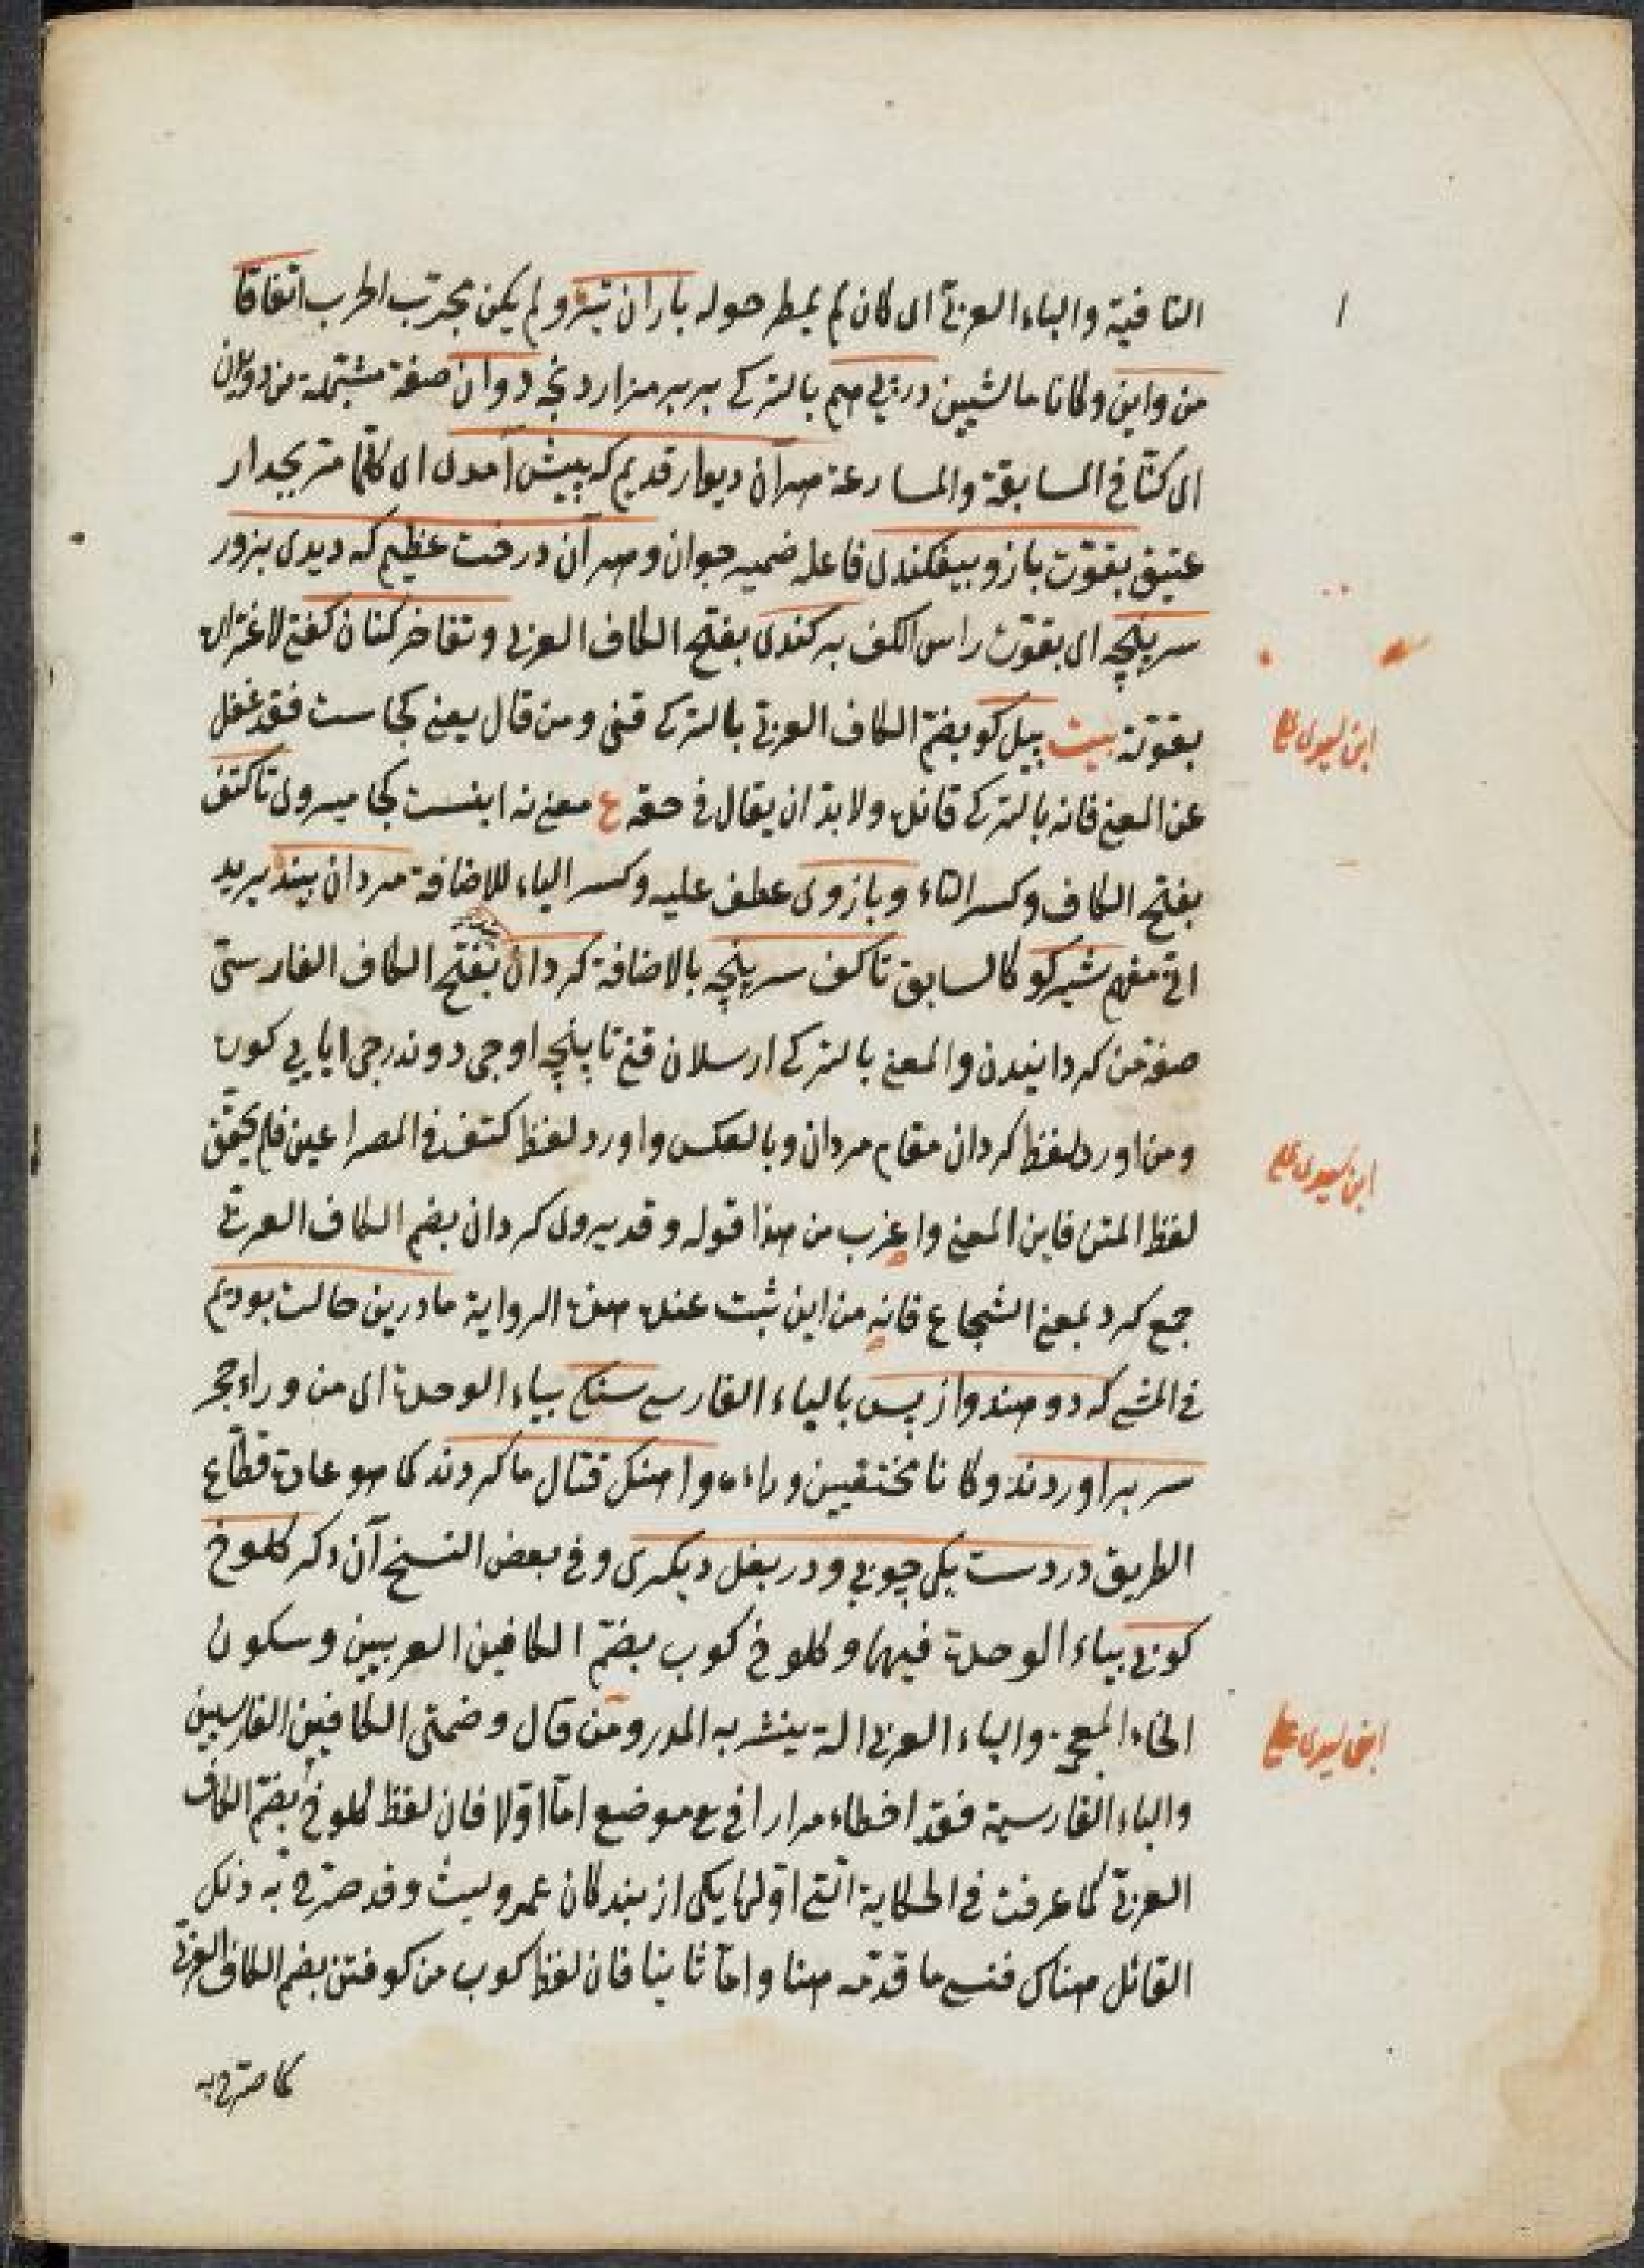 النافية والباء العربي اى كان لم يمطر حوله باران تير ولم يكن مجرّب الحرب اتفاقا
من واين وكانا ماشيين درپى هم بالتركى بربر منزار دنجه دوان صفة مشتملة من دويدن
اى كنّا فى المسابقة والمسارعة هر آن ديوار قديم كه پيش آمدى اى كلّما مرّ بجدار
عتيق بقوّت بازو بيفكندى فاعله ضمير جوان وهر آن درخت عظيم كه ديدى بزور
سرپنچه اى بقوّت راس الكف بر كندى بفتح الكاف العربى وتفاخر كنان كفتى لاغترار
بقوته بيت پيل كو بضمّ الكاف العربى بالتركى قنى ومن قال يعنى كجاست فقد غفل
عن المعنى فانه بالتركى قائل ولا بدّ ان يقال فى حقه ع معنى نه اينست كجا ميروى تا كتف
بفتح الكاف وكسر التاء وبازوى عطف عليه وكسر الياء للاضافة مردان بيند يريد
شير كو كالسابق تا كف سرپنچه بالاضافة كردان بفتح الكاف الفارسى
صفة من كردانيدن والمعنى بالتركى ارسلان قنى تا پنچه اوجى دوندرجى
ومن اورد لفظ كردان مقام مردان وبالعكس واورد لفظ كتف فى المصراعين فلم يحقّق
لفظ المتن فاين المعنى واغرب من هذا قوله وقد يروى كردان بضم الكاف العربى
جمع كرد بمعنى الشجاع فانه من اين ثبت عنده هذه الرواية ما درين حالت بوديم
فى المشى كه دو هندو از پس بالباء الفارسى سنكى بياء الوحدة اى من وراء حجر
سر بر اوردند وكانا مختفيين وراءه واهنك قتال ما كردند كما هو عادة قطّاع
الطريق در دست يكى چوبى ودر بغل ديكرى وفى بعض النسخ آن دكر كلوخ
كوبى بياء الوحدة فيهما وكلوخ كوب بضمّ الكافين العربيين وسكون
الخاء المعجمة والباء العربى الة ينشر به المدر ومن قال وضمتى الكافين الفارسيين
والباء الفارسية فقد اخطاء مرارا فى موضع امّا اوّلا فان لفظ كلوخ بضمّ الكاف
العربى كما عرفت فى الحكاية التى اوّلها يكى از بندكان عمرو ليث وقد صرّح به ذلك
القائل هناك فنسى ما قدّمه هنا وامّا ثانيا فان لفظ كوب من كوفتن بضم الكاف العربى
كما صرّح به